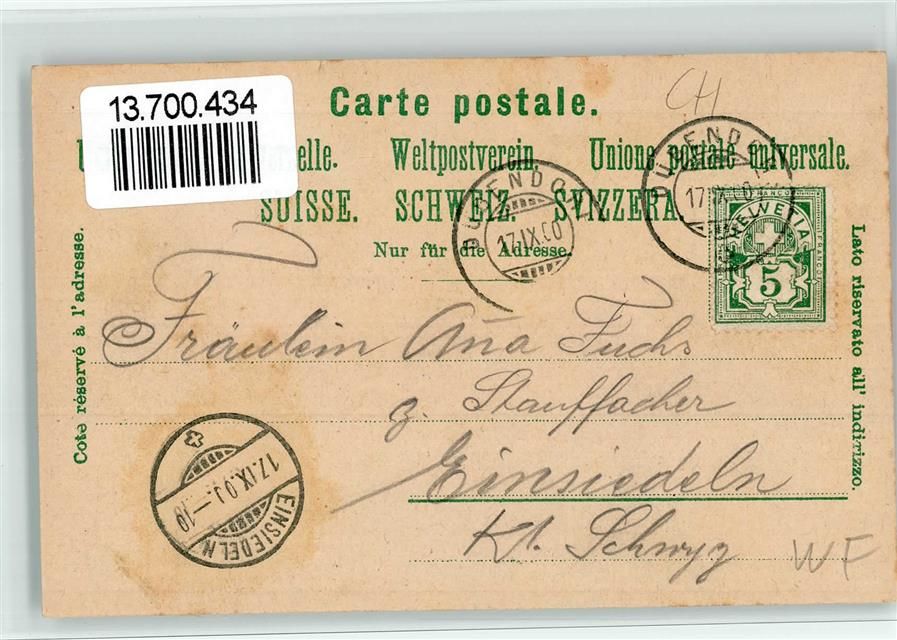 13.700.434
CH
Carte postale.
elle. Weltpostverein. Unione postale universale.
SUISSE. SCHWEIZ. SVIZZERA.
Nur für die Adresse.
Coté réservé à l'adresse.
Lato riservato all' indirizzo.
DÜBENDORF
17.IX.00
17.IX.00
FRANCO
HELVETIA
5
Fräulein Ana Fuchs
z. Stauffacher
Einsiedeln
Kt. Schwyz
17.IX.00.-10
EINSIEDELN
WF